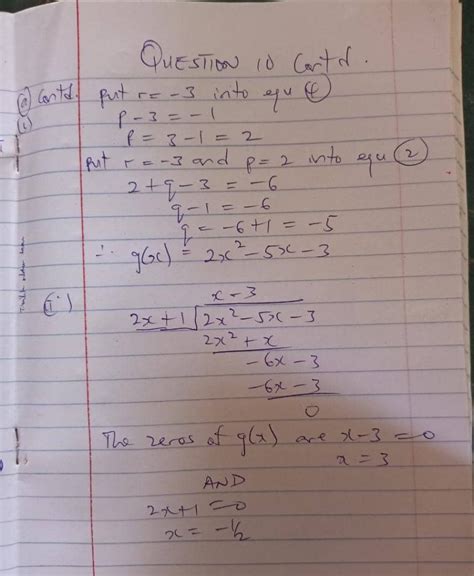 QUESTION 10 Cont'd.
(a) Cont'd. put r = -3 into equ (4)
(i)
p - 3 = -1
p = 3 - 1 = 2
put r = -3 and p = 2 into equ (2)
2 + q - 3 = -6
q - 1 = -6
q = -6 + 1 = -5
∴ g(x) = 2x² - 5x - 3
(ii)
x - 3
2x + 1 √ 2x² - 5x - 3
2x² + x
-6x - 3
-6x - 3
0
The zeros of g(x) are x - 3 = 0
x = 3
AND
2x + 1 = 0
x = -1/2